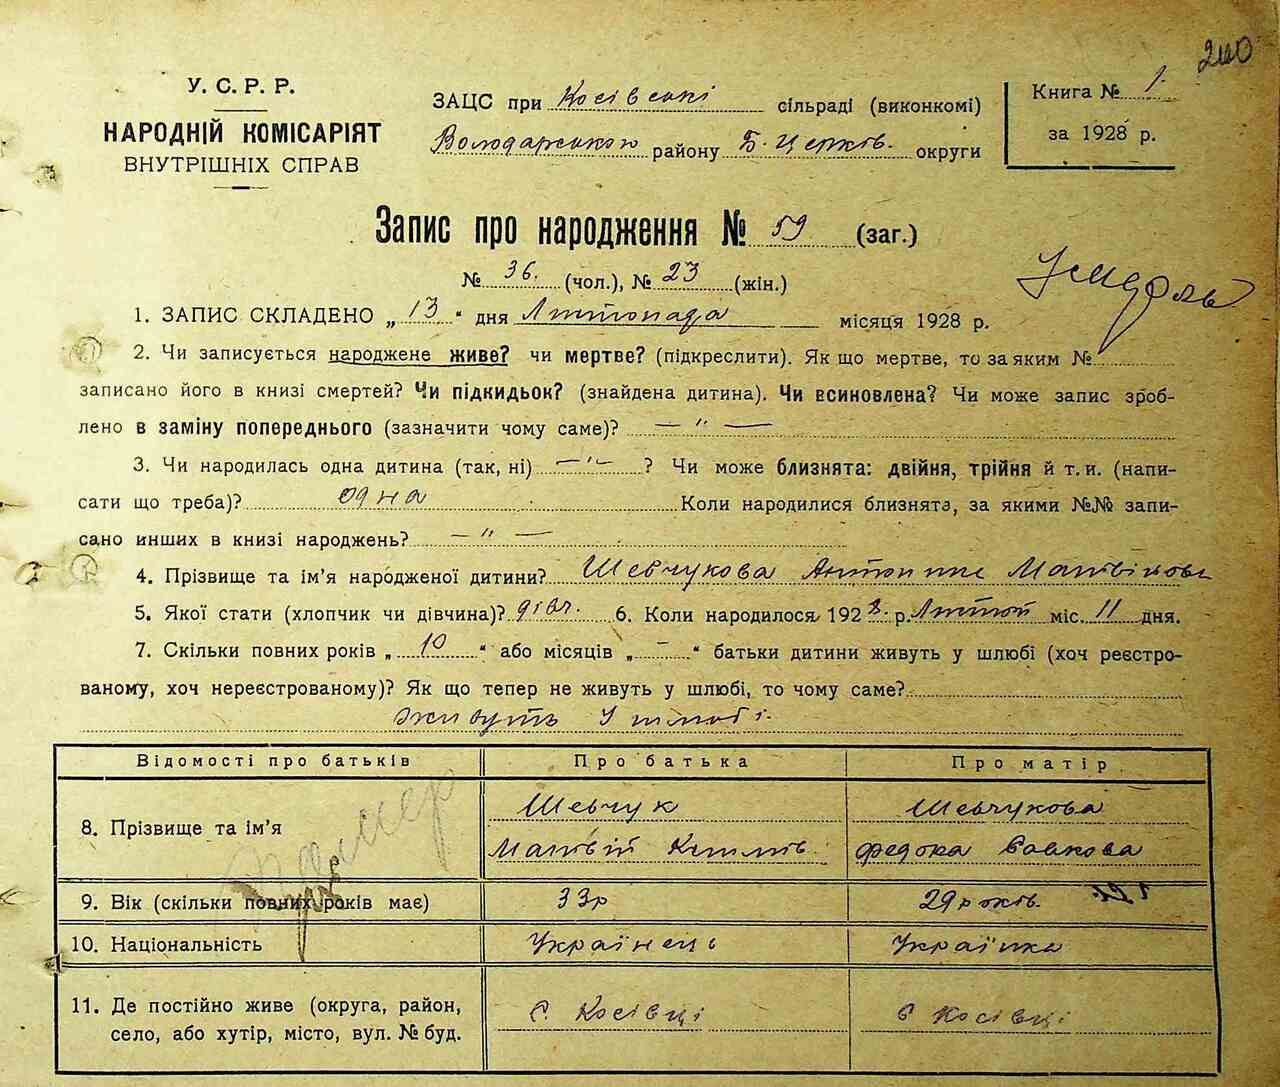 240
У. С. Р. Р.
НАРОДНІЙ КОМІСАРІЯТ
ВНУТРІШНІХ СПРАВ
ЗАЦС при Косівські сільраді (виконкомі)
Володарського району Б. Церків. округи
Книга № 1.
за 1928 р.
Запис про народження № 59 (заг.)
№ 36. (чол.), № 23 (жін.)
1. ЗАПИС СКЛАДЕНО „ 13 “ дня Листопада місяця 1928 р.
2. Чи записується народжене живе? чи мертве? (підкреслити). Як що мертве, то за яким №
записано його в книзі смертей? Чи підкидьок? (знайдена дитина). Чи всиновлена? Чи може запис зроб-
лено в заміну попереднього (зазначити чому саме)? — " —
3. Чи народилась одна дитина (так, ні) — " — ? Чи може близнята: двійня, трійня й т. и. (напи-
сати що треба)? одна Коли народилися близнята, за якими №№ запи-
сано инших в книзі народжень? — " —
4. Прізвище та ім’я народженої дитини? Шевчукова
5. Якої стати (хлопчик чи дівчина)? дівч. 6. Коли народилося 1928. р. міс. 11 дня.
7. Скільки повних років „ 10 “ або місяців „ — “ батьки дитини живуть у шлюбі (хоч реєстро-
ваному, хоч нереєстрованому)? Як що тепер не живуть у шлюбі, то чому саме?
живуть у шлюбі.
Відомості про батьків Про батька Про матір
8. Прізвище та ім’я
Шевчук Шевчукова
Матвій Федора
9. Вік (скільки повних років має) 33 р 29 років.
10. Національність Українець Українка
11. Де постійно живе (округа, район, с. Косівці с Косівці
село, або хутір, місто, вул. № буд.